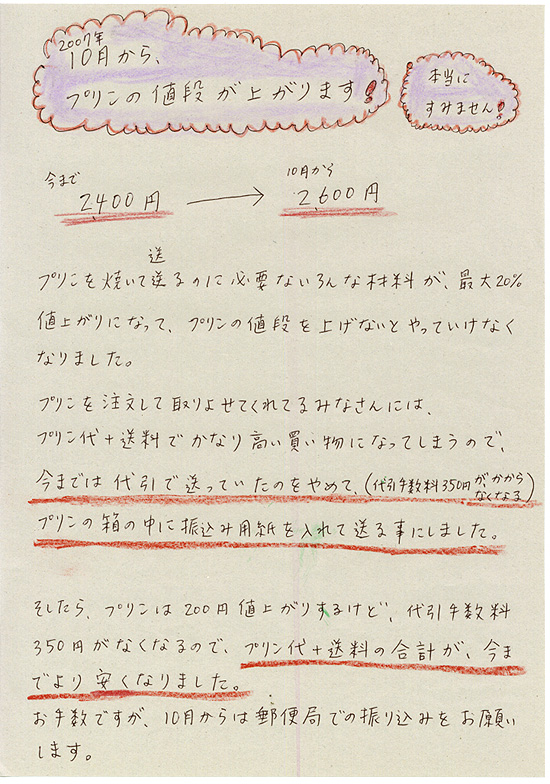 2007年
10月から、
プリンの値段が上がります!
本当に
すみません!
今まで
2,400円
10月から
2,600円
送
プリンを焼いて送るのに必要ないろんな材料が、最大20%
値上がりになって、プリンの値段を上げないとやっていけなく
なりました。
プリンを注文して取りよせてくれてるみなさんには、
プリン代+送料でかなり高い買い物になってしまうので、
今までは代引で送っていたのをやめて、(代引手数料350円がかからなくなる)
プリンの箱の中に振込み用紙を入れて送る事にしました。
そしたら、プリンは200円値上がりするけど、代引手数料
350円がなくなるので、プリン代+送料の合計が、今ま
でより安くなりました。
お手数ですが、10月からは郵便局での振り込みをお願い
します。